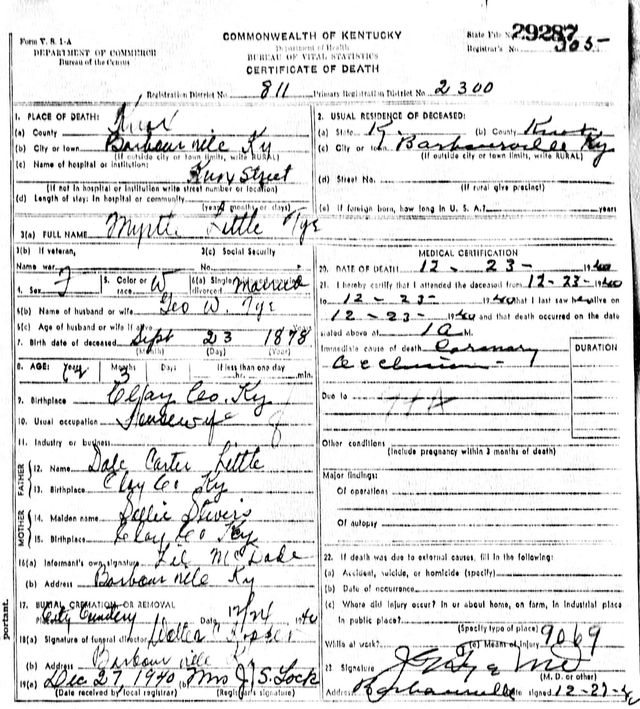 Form V. S. 1-A
DEPARTMENT OF COMMERCE
Bureau of the Census
COMMONWEALTH OF KENTUCKY
Department of Health
BUREAU OF VITAL STATISTICS
CERTIFICATE OF DEATH
State File No. 29287
Registrar's No. 305
Registration District No. 811 Primary Registration District No. 2300
1. PLACE OF DEATH:
(a) County Knox
(b) City or town Barbourville Ky
(If outside city or town limits, write RURAL)
(c) Name of hospital or institution:
Knox Street
(If not in hospital or institution write street number or location)
(d) Length of stay: In hospital or community
(years, months or days)
2. USUAL RESIDENCE OF DECEASED:
(a) State Ky. (b) County Knox
(c) City or town Barbourville Ky
(If outside city or town limits, write RURAL)
(d) Street No.
(If rural give precinct)
(e) If foreign born, how long in U. S. A.? years
3(a) FULL NAME Myrtle Little Tye
3(b) If veteran, 3(c) Social Security
Name war No.
4. Sex F 5. Color or race W 6(a) Single Married
6(b) Name of husband or wife Geo W. Tye
6(c) Age of husband or wife if alive
7. Birth date of deceased Sept 23 1878
(Month) (Day) (Year)
8. AGE: Years 62 Months 3 Days If less than one day
hr. min.
9. Birthplace Clay Co. Ky
10. Usual occupation Housewife
11. Industry or business
FATHER
12. Name Dale Carter Little
13. Birthplace Clay Co Ky
MOTHER
14. Maiden name Sallie Stivers
15. Birthplace Clay Co Ky
16(a) Informant's own signature Lil McDade
(b) Address Barbourville Ky
17. BURIAL CREMATION, OR REMOVAL
City Cemetery Date 12/24 1940
18(a) Signature of funeral director Walter Hopper
(b) Address Barbourville Ky
19(a) Dec 27, 1940 (b) Mrs J. S. Lock
(Date received by local registrar) (Registrar's signature)
MEDICAL CERTIFICATION
20. DATE OF DEATH 12 - 23 - 1940
21. I hereby certify that I attended the deceased from 12-23-1940
to 12-23-1940 that I last saw her alive on
12-23-1940 and that death occurred on the date
stated above at 1 A M.
Immediate cause of death Coronary
occlusion
DURATION
Due to
Other conditions
(Include pregnancy within 3 months of death)
Major findings:
Of operations
Of autopsy
22. If death was due to external causes, fill in the following:
(a) Accident, suicide, or homicide (specify)
(b) Date of occurrence
(c) Where did injury occur? In or about home, on farm, in industrial place
In public place?
(Specify type of place) 9069
While at work? (e) Means of injury
23. Signature J G Tye MD
(M. D. or other)
Address Barbourville Date signed 12-27-40
portant.